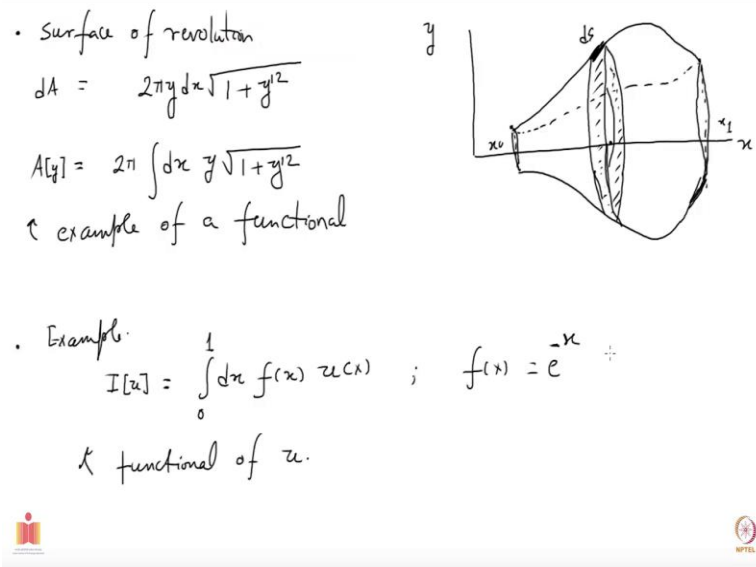 • Surface of revolution
dA = 2πy dx √(1 + y'²)
A[y] = 2π ∫ dx y √(1 + y'²)
↑ example of a functional
y
ds
x₀
x₁
x
• Example.
I[u] = ∫₀¹ dx f(x) u(x) ; f(x) = e⁻ˣ
↑ functional of u.
NPTEL